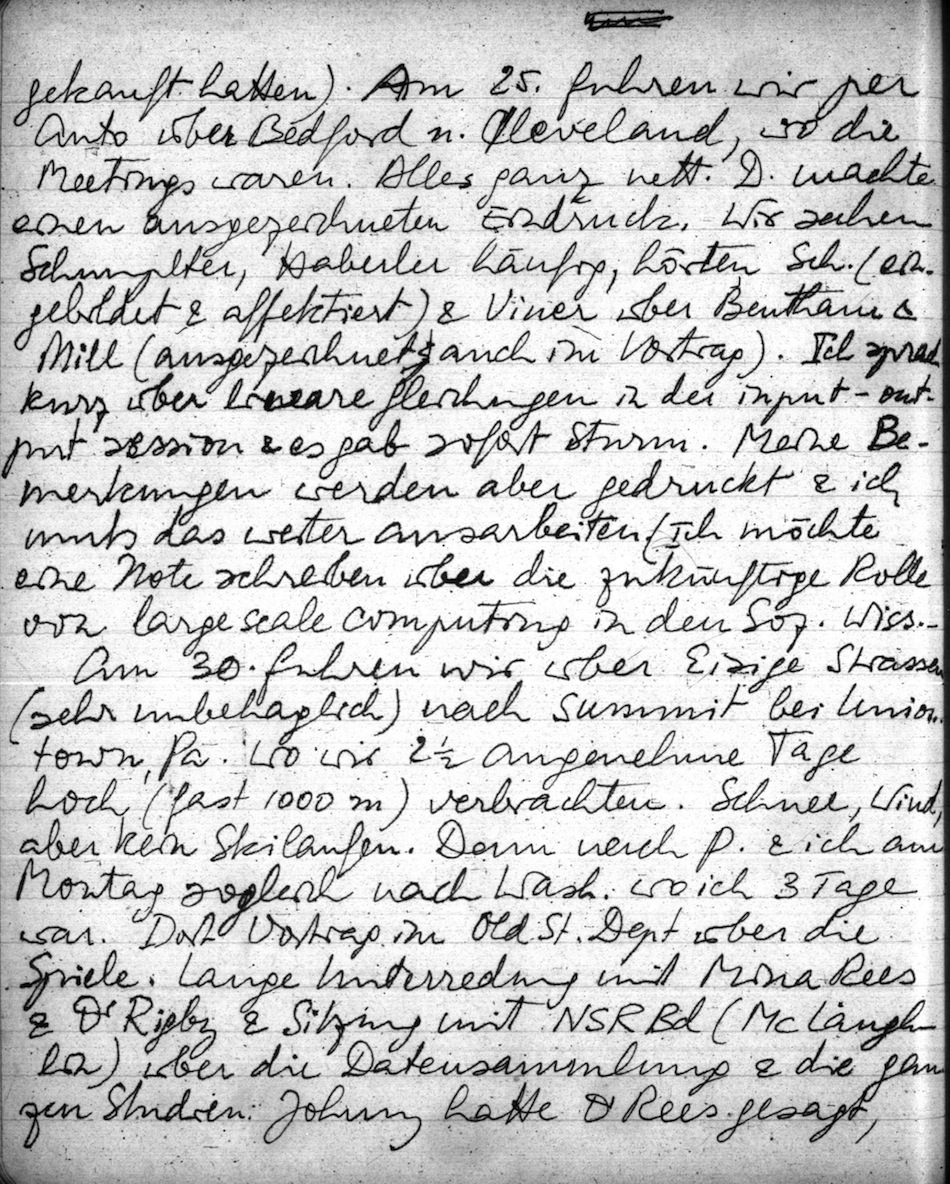 gekauft hatten). Am 25. fuhren wir per
Auto über Bedford n. Cleveland, wo die
Meetings waren. Alles ganz nett. D. machte
einen ausgezeichneten Eindruck. Wir sahen
Schumpeter, Haberler häufig, hörten Sch. (ein-
gebildet & affektiert) & Viner über Bentham &
Mill (ausgezeichnet, auch im Vortrag). Ich sprach
kurz über lineare Gleichungen in der input-out-
put session & es gab sofort Sturm. Meine Be-
merkungen werden aber gedruckt & ich
muss das weiter ausarbeiten. (Ich möchte
eine Note schreiben über die zukünftige Rolle
von large scale computing in den Soz. Wiss.-
Am 30. fuhren wir über Eisige Strassen
(sehr unbehaglich) nach Summit bei Union-
town, Pa. wo wir 2½ angenehme Tage
hoch (fast 1000 m) verbrachten. Schnee, Wind,
aber kein Skilaufen. Dann nach P. & ich am
Montag sogleich nach Wash. wo ich 3 Tage
war. Dort Vortrag im Old St. Dept über die
Spiele. Lange Unterredung mit Mina Rees
& Dr Rigby & Sitzung mit NSRBd (McLaugh-
lin) über die Datensammlung & die gan
zen Studien. Johnny hatte Dr Rees gesagt,